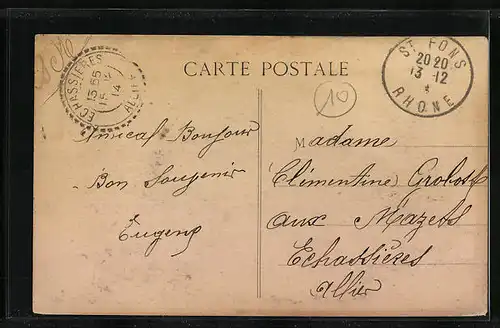 CARTE POSTALE
ECHASSIERES
13 55
15
14
ALLIER
ST FONS
20 20
13 - 12
*
RHONE
10
Amical Bonjour
Bon Souvenir
Eugene
Madame
Clémentine
aux Mazets
Echassières
Allier